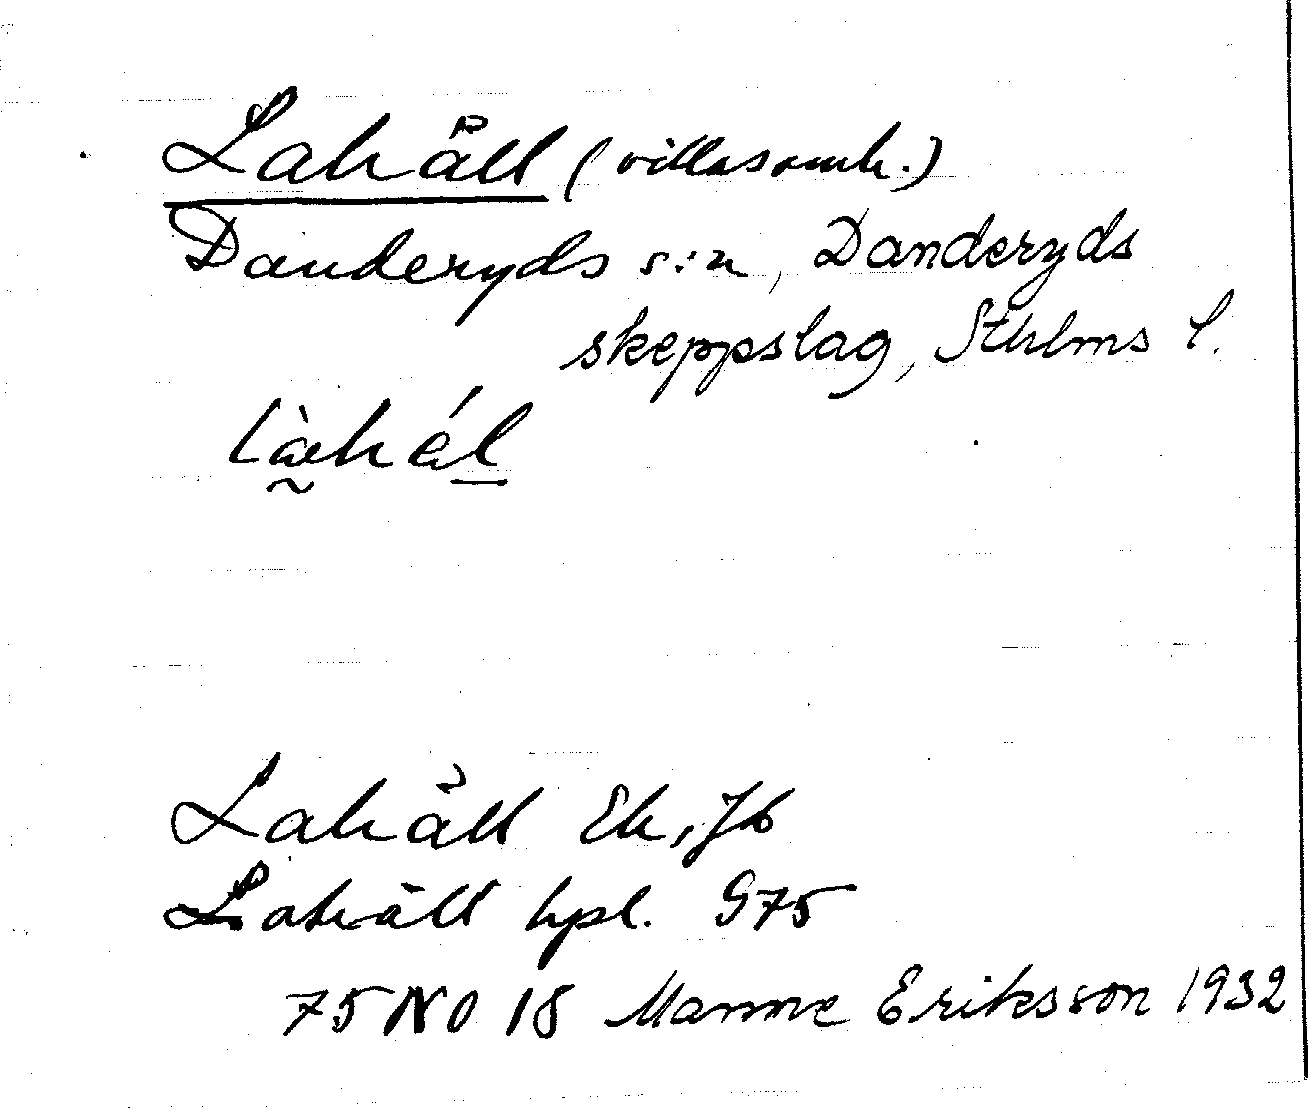 Lahäll (villasamh.)
Danderyds s:n, Danderyds
skeppslag, Sthlms l.
Lahäll Ek, Jb
Lahäll hpl. G75
75 NO 18 Manne Eriksson 1932